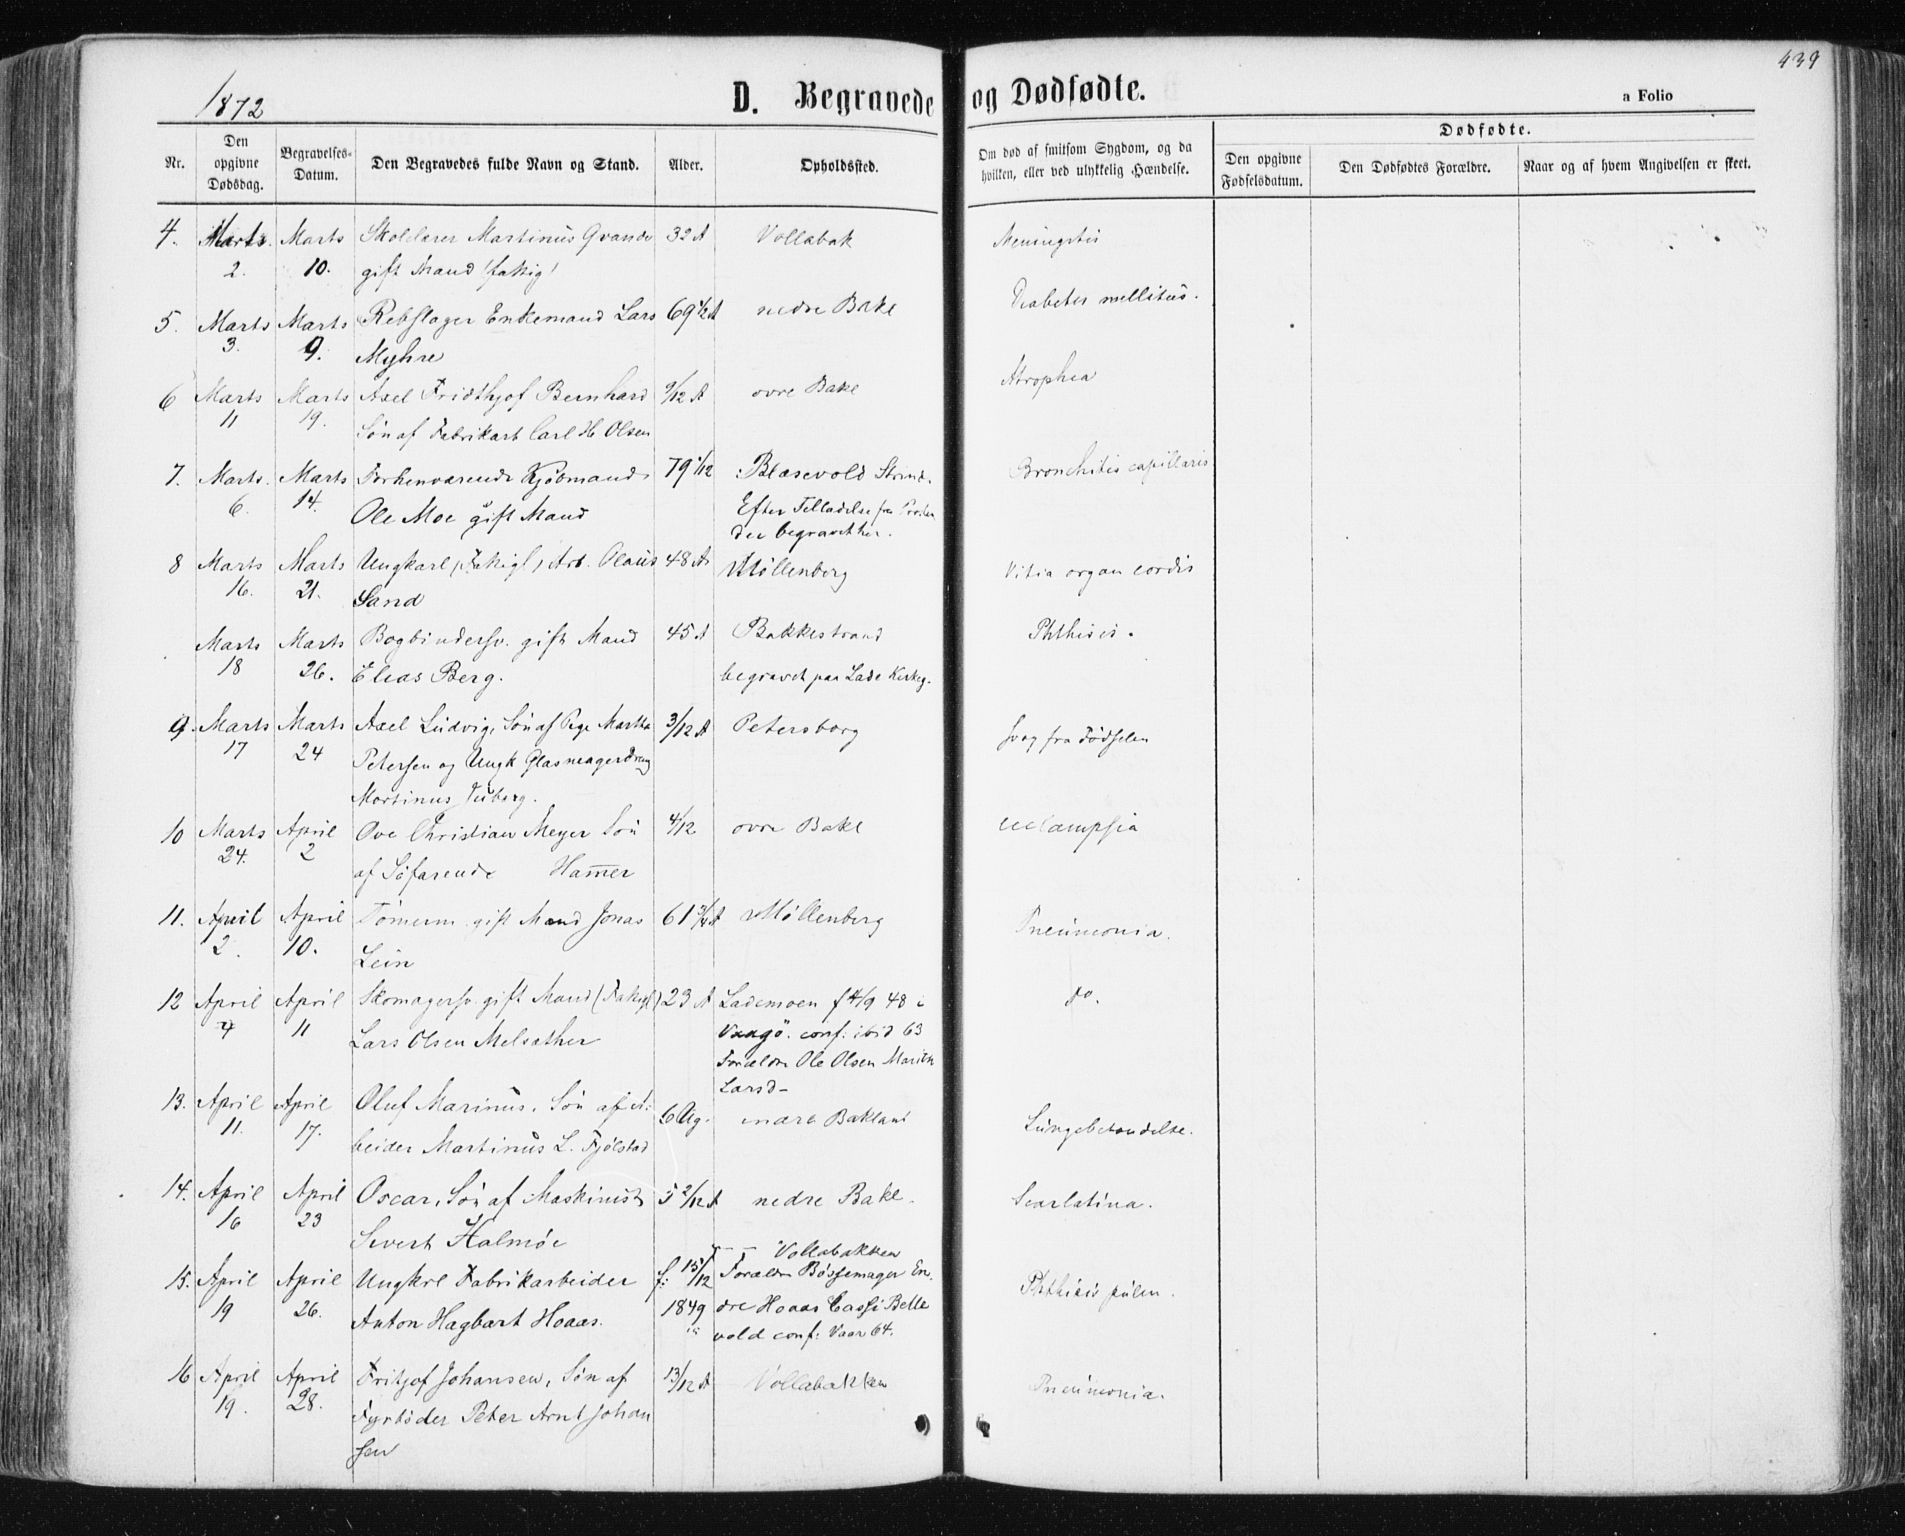 1872
D. Begravede og Dødfødte.
a Folio
439
Nr.
Den opgivne Dødsdag.
Begravelses-Datum.
Den Begravedes fulde Navn og Stand.
Alder.
Opholdssted.
Om død af smitsom Sygdom, og da hvilken, eller ved ulykkelig Hændelse.
Dødfødte.
Den opgivne Fødselsdatum.
Den Dødfødtes Forældre.
Naar og af hvem Angivelsen er skeet.
4. Marts Marts Skolelærer Martinus Grande 32 A Vollabak Meningitis
2. 10. gift Mand
5. Marts Marts Rebslager Enkemand Lars 69 1/2 A nedre Bake Diabetes mellitus.
3. 9. Myhre
6 Marts Marts Axel Fridthjof Bernhard 9/12 A ovre Bake Atrophea
11 19. Søn af Fabrikarb Carl H Olsen
7. Marts. Marts Forhenværende Kjøbmand 79 1/12 Blæsevold Strind. Bronchitis capillaris
6. 14. Ole Moe gift Mand Efter Tilladelse fra
der begravet her.
8 Marts Marts Ungkarl, Arb. Olaus 48 A Møllenberg Vitia organ cordis
16. 21. Sand
Marts Marts Bogbindersv. gift Mand 45 A Bakkestrand Phthisis.
18 26. Elias Berg. begravet paa Lade Kirkeg.
9. Marts Marts Axel Ludvig, Søn af Pige Martha 3/12 A Petersborg svag fra Fødselen
17 24 Petersen og Ungk Glasmagerdreng
Martinus
10 Marts April Ove Christian Meyer Søn 4/12 ovre Bake Eclampsia
24. 2 af Søfarende Ham̅er
11. April April Tømerm. gift Mand Jonas 61 3/4 A Møllenberg Pneumonia.
2. 10. Lein
12 April April Skomagersv. gift Mand (Fakigl) 23 A Lademoen f 4/9 48 i do.
4 11 Lars Olsen Melsæther conf: ibid 63
Forældre Ole Olsen Marith
Larsd-
13. April April Oluf Marinus, Søn af Ar: 6 Ug. Baklandt Lungebetændelse.
11. 17. beider Martinus L. Fjølstad
14. April April Oscar, Søn af Maskinist 5 2/12 A nedre Bake. Scarlatina.
16 23 Sivert Halmøe
15. April April Ungkrl Fabrikarbeider f: 15/12 Vollabakken Phthisis pulm.
19 26. Anton Hagbart Hoaas. 1849 Forældre Bøssemager En-
dre Hoaas Belle
vold conf: Vaar 64.
16 April April Fritjof Johansen, Søn af 13/12 A Vollabakken Pneumonia.
19. 28. Fyrbøder Peter Arnt Johan
sen